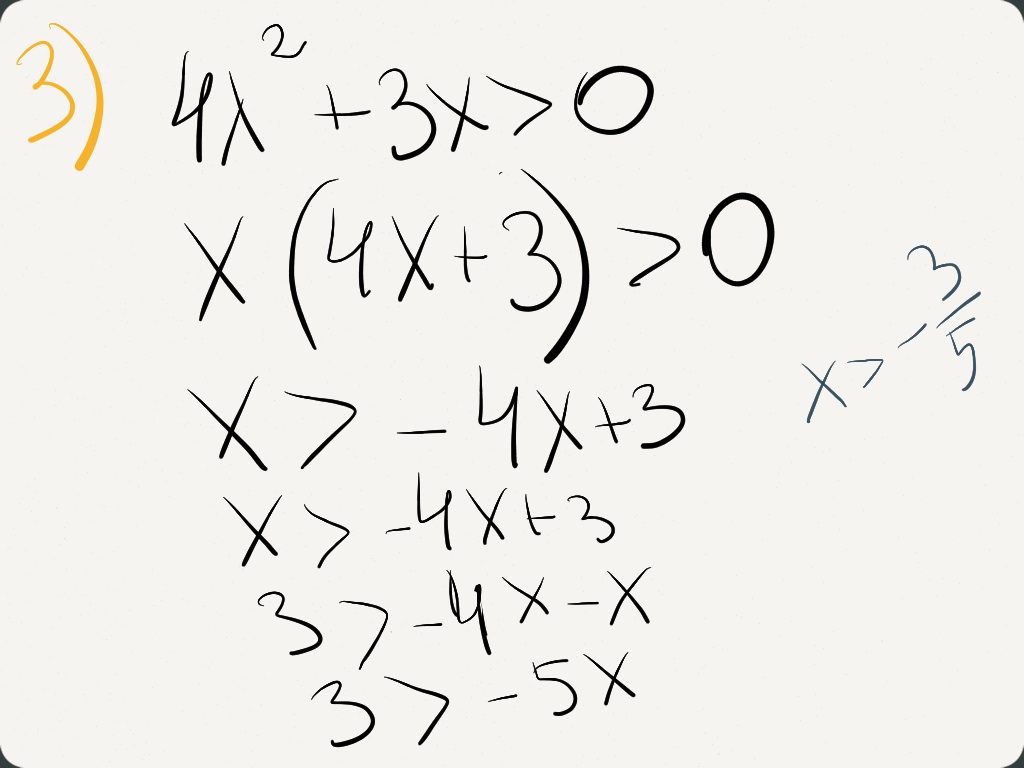 3) 4x² + 3x > 0
x (4x + 3) > 0
x > - 4x + 3
x > -4x + 3
3 > -4x - x
3 > -5x
x > -3/5